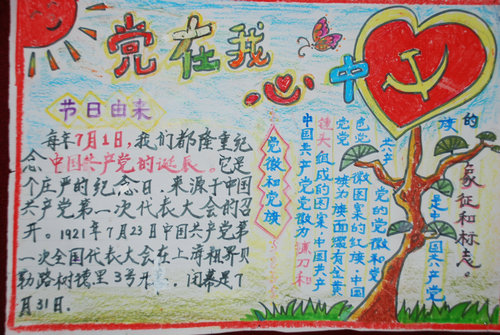 党在我心中
节日由来
每年7月1日，我们都隆重纪
念中国共产党的诞辰。它是
个庄严的纪念日，来源于中国
共产党第一次代表大会的召
开。1921年7月23日中国共产党第
一次全国代表大会在上海租界贝
勒路树德里3号开，闭幕是7
月31日.
党徽和党旗
中国共产党党徽为镰刀和
锤头组成的图案.中国共产
党党旗为旗面缀有金黄
色党徽图案的红旗.中国
共产党的党徽和党
旗是中国共产党
的象征和标志.